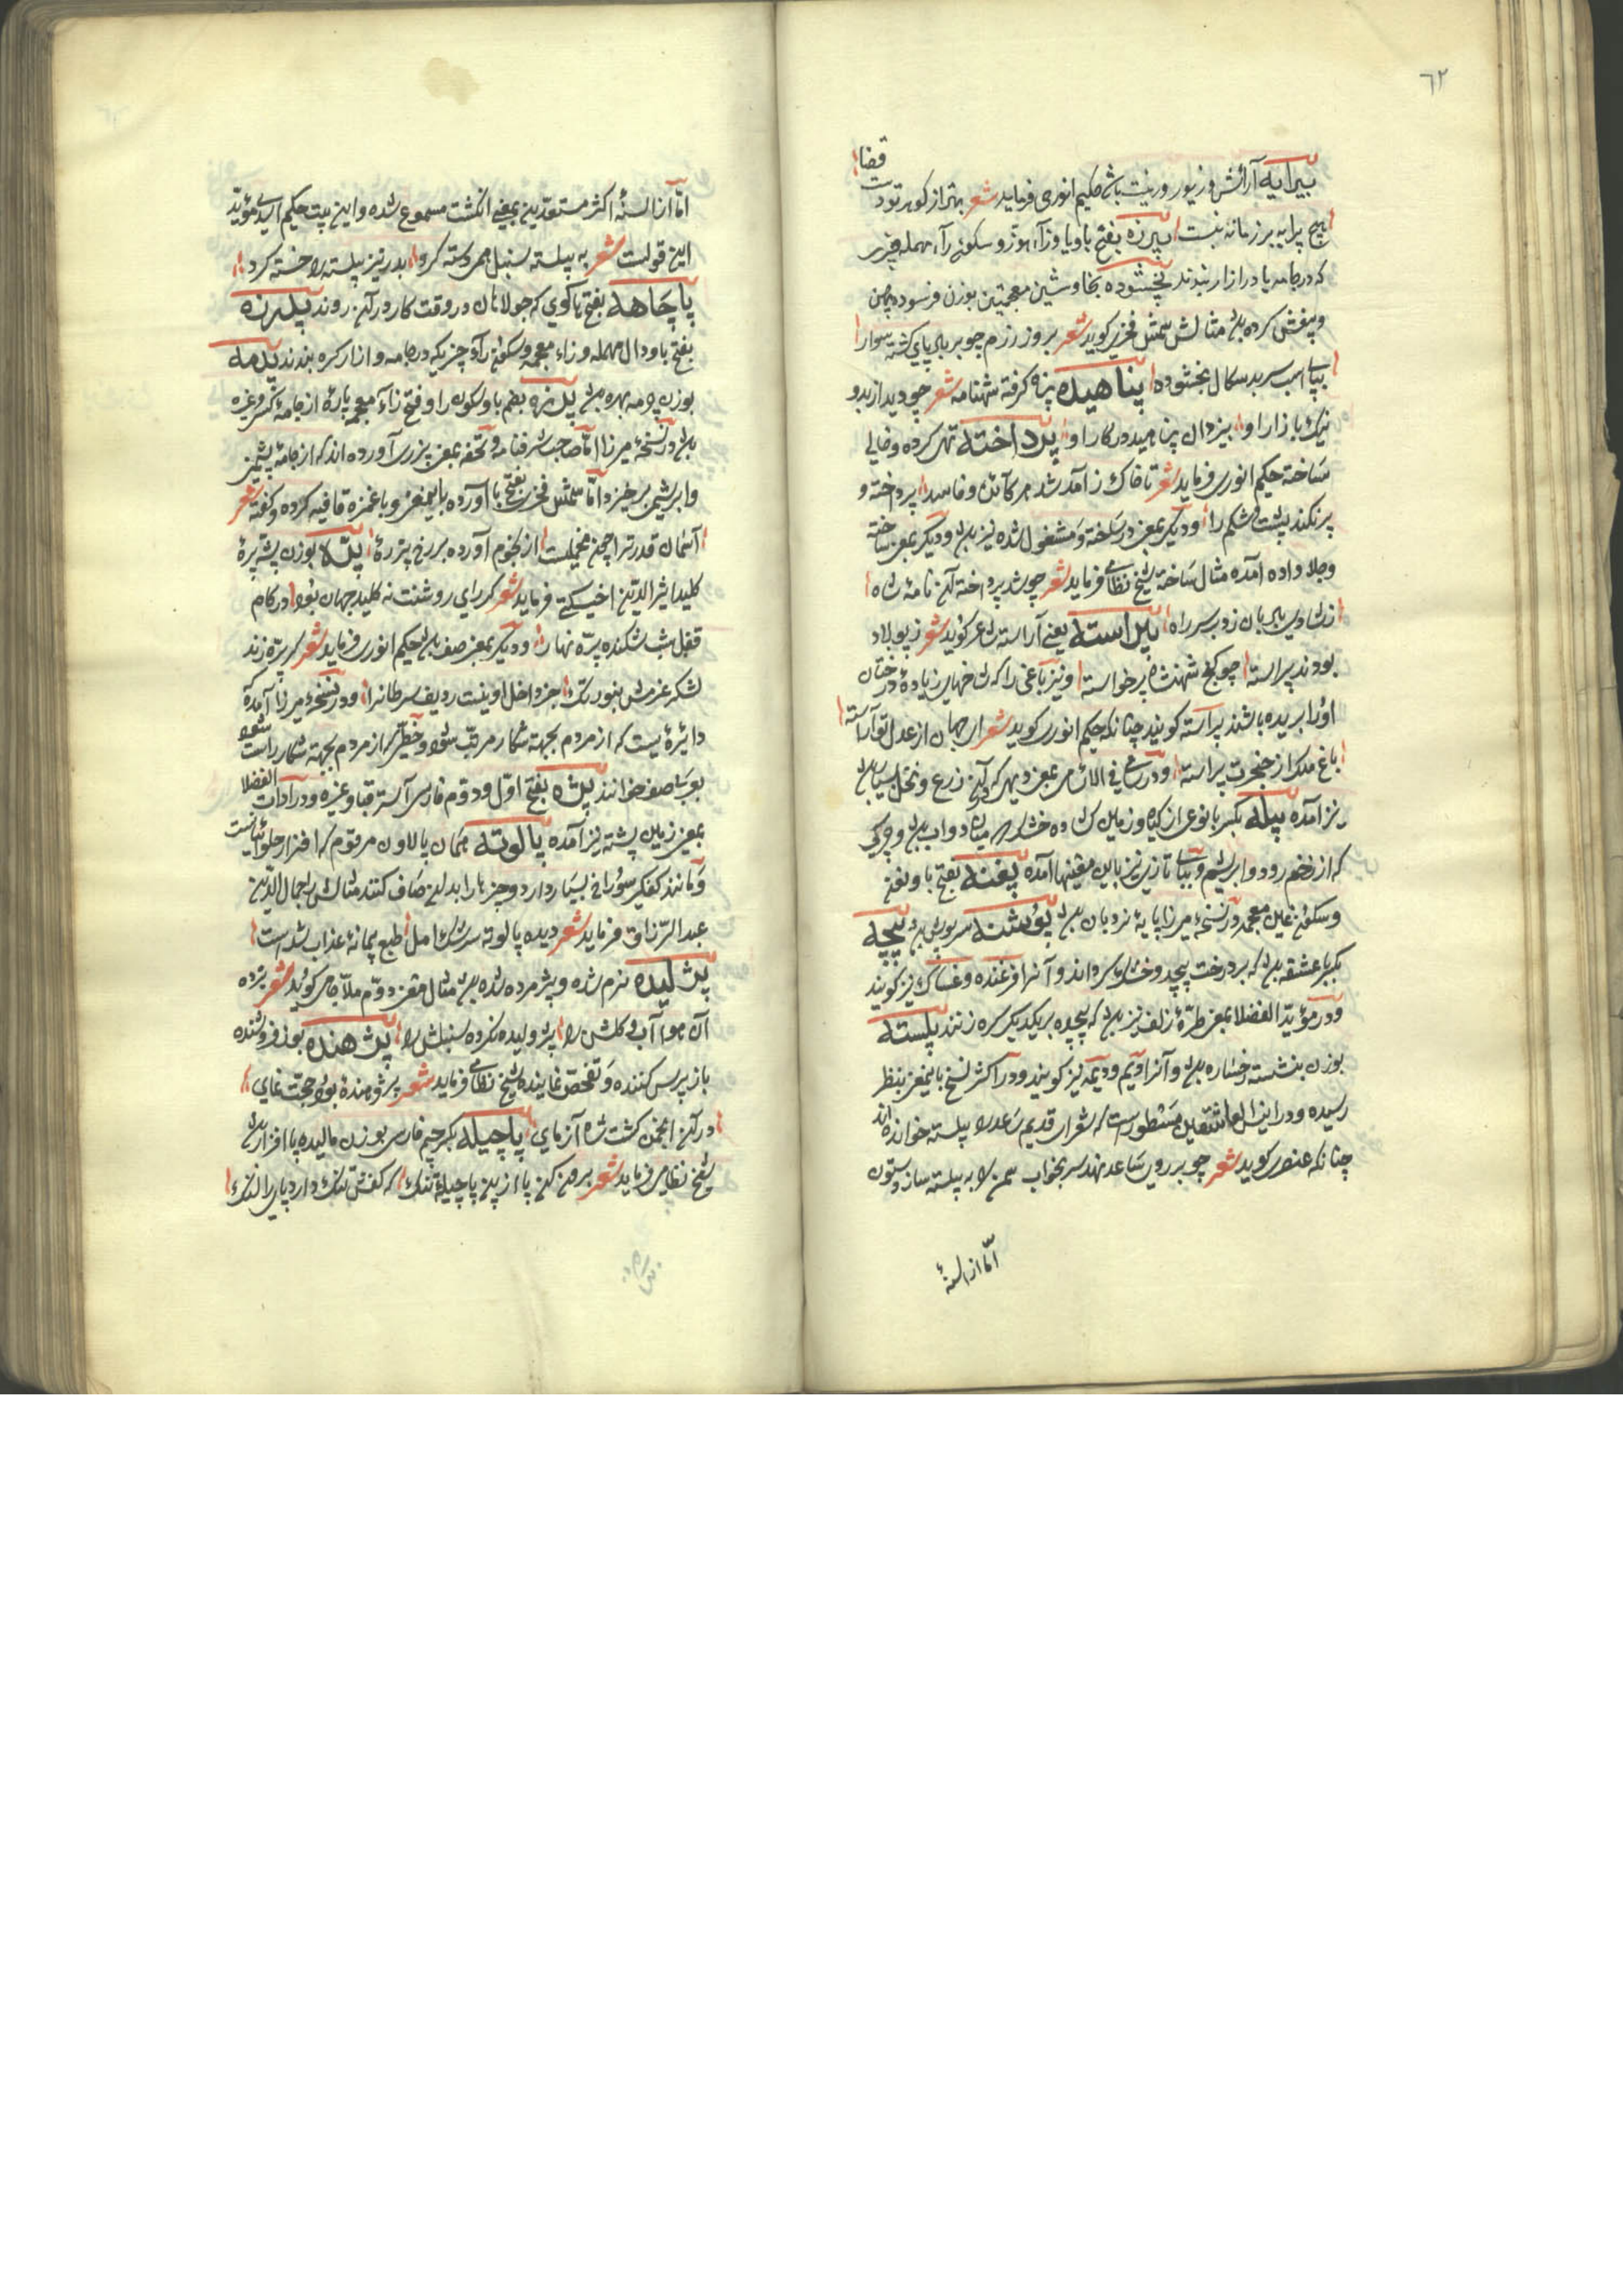 ٦٢
قضا
پیرایه آرائش و زیور و زینت باشد حکیم انوری فرماید شعر بهتر از کوهر تو دست
هیچ پیرایه بر زمانه نبست پیرزه بفتح با و یا و زآء هوّز و سکون رآء مهمله چیزی
که در جامه یا در ازار بندند پخشوده بخا و شین معجمتین بوزن فرسوده پهن
و پخش کرده باشد مثالش شمس فخری کوید شعر بروز رزم چو بر باد پای کشته سوار
بپای اسب سر بدسکال پخشوده پناهیده پناه کرفته شهنامه شعر چو دید ازبدو
نیک بازار او بیزدان پناهید در کار او پرداخته تهی کرده و خالی
ساخته حکیم انوری فرماید شعر تا خاک ز آمد شد هر کائن و فاسد پرداخته و
پر نکند پشت و شکم را و دیگر بمعنی در ساخته و مشغول شده نیز باشد و دیگر بمعنی ساخته
و جلا داده آمده مثال ساخته شیخ نظامی فرماید شعر چو شد پرداخته آن نامهٔ شاه
ز شادی پای بان زد بر سر راه پیراسته یعنی آراسته شاعر کوید شعر ز پولاد
بودند پیراسته چو کنج شهنشاه پر خواسته و نیز باغی را که شاخهای زیادهٔ درختان
او را بریده باشند پیراسته کویند چنانکه حکیم انوری کوید شعر ای جهان از عدل تو آراسته
باغ ملک از خنجرت پیراسته و در سامی فی الاسامی بمعنی دیهی که در آن زرع و نخل بسیار باشد
نیز آمده پیله بکسر با نوعی از کیاه و زمین کشاده خشک و میان دو آب باشد و چرکی
که از زخم رود و ابریشم و بپای تازی نیز باین معنیها آمده پغنه بفتح با و بفتح
و سکون غین معجمه در نسخهٔ میرزا پایهٔ نردبان باشد پوشنه سرپوش باشد پیچه
بکسر با عشقه باشد که بر درخت پیچد و خشک کرداند و آنرا فرغنده و غساک نیز کویند
و در مؤید الفضلا بمعنی طرّهٔ زلف نیز باشد که پیچیده بر یکدیگر کره زنند پیلسته
بوزن بنشسته رخساره باشد و آنرا ویم و دیمه نیز کویند و در اکثر نسخ باینمعنی بنظر
رسیده و در انیس العاشقین مسطور است که شعرای قدیم ساعد را پیلسته خوانده اند
چنانکه عنصری کوید شعر چو بر روی ساعد نهد سر بخواب سمن را به پیلسته سازد ستون
امّا از السنهٔ
امّا از السنهٔ اکثر مستعدین بمعنی انکشت مسموع شده و این بیت حکیم اسدی مؤید
این قولست شعر به پیلسته سنبل همی دسته کرد بدر نیز پیلسته را خسته کرد
پاچاهه بفتح ها کوی که جولاهان در وقت کار در آن روند پدرزه
بفتح با و دال مهمله و زاء معجمه و سکون رآء چیزیکه در جامه و ازار کره بندند پدمه
بوزن دمه بهره باشد پرزه بضم با و سکون را و فتح زآء معجمه پارهٔ از جامهٔ کسی و غیره
باشد در نسخهٔ میرزا امّا صاحب شرفنامه و تحفه بمعنی پرزی آورده اند که از جامهٔ پشمین
و ابریشمی برخیزد امّا شمس فخری بفتح با آورده باینمعنی و با غمزه قافیه کرده و کفته شعر
آسمان قدر ترا چون مخملست از نجوم آورده بر رخ پرزهٔ پرّه بوزن پشّه پرّهٔ
کلید اثیر الدین اخسیکتی فرماید شعر کر رای روشنت نه کلید جهان بود در کام
قفل شب شکند پرّه نهار و دیگر بمعنی صف باشد حکیم انوری فرماید شعر کر پرّه زند
لشکر عزمش نبود تنک جز داخل اوینت ردیف سرطانرا و در نسخهٔ میرزا آمده که
دایرهٔ یست که از مردم بجهته شکار مرتب شود و خطّی که از مردم بجهته شکار راست شود
یوسا صف خوانند پزه بفتح اوّل و دوّم فارسی آستر قبا و غیره و در آدات الفضلا
بمعنی زمین پشته نیز آمده پالونه همان پالاون مرقوم که افزار حلوائیانست
و مانند کفکیر سوراخ بسیار دارد و چیزها را بدان صاف کنند مثالش جمال الدین
عبد الرّزاق فرماید شعر دیده پالونهٔ سرشک امل طبع پیمانهٔ عذاب شدست
پژولیده نرم شده و پژمرده شده باشد مثال معنی دوّم ملّا جامی کوید شعر بژده
آن هوا آب و کلش را پژولیده نکرده سنبلش را پژهنده بوزن فروشنده
باز پرس کننده و تفحّص نماینده شیخ نظامی فرماید شعر پژوهندهٔ بود حجّت نمای
در آن انجمن کشت شاه آزمای پاچیله بکسر چیم فارسی بوزن مالیده پا افزار باشد
شیخ نظامی فرماید شعر برون کن پا ازین پاچیلهٔ تنک که کفش تنک دارد پای را لنک